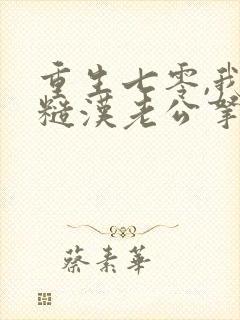 重生七零,我
糙漢老公
蔡素華